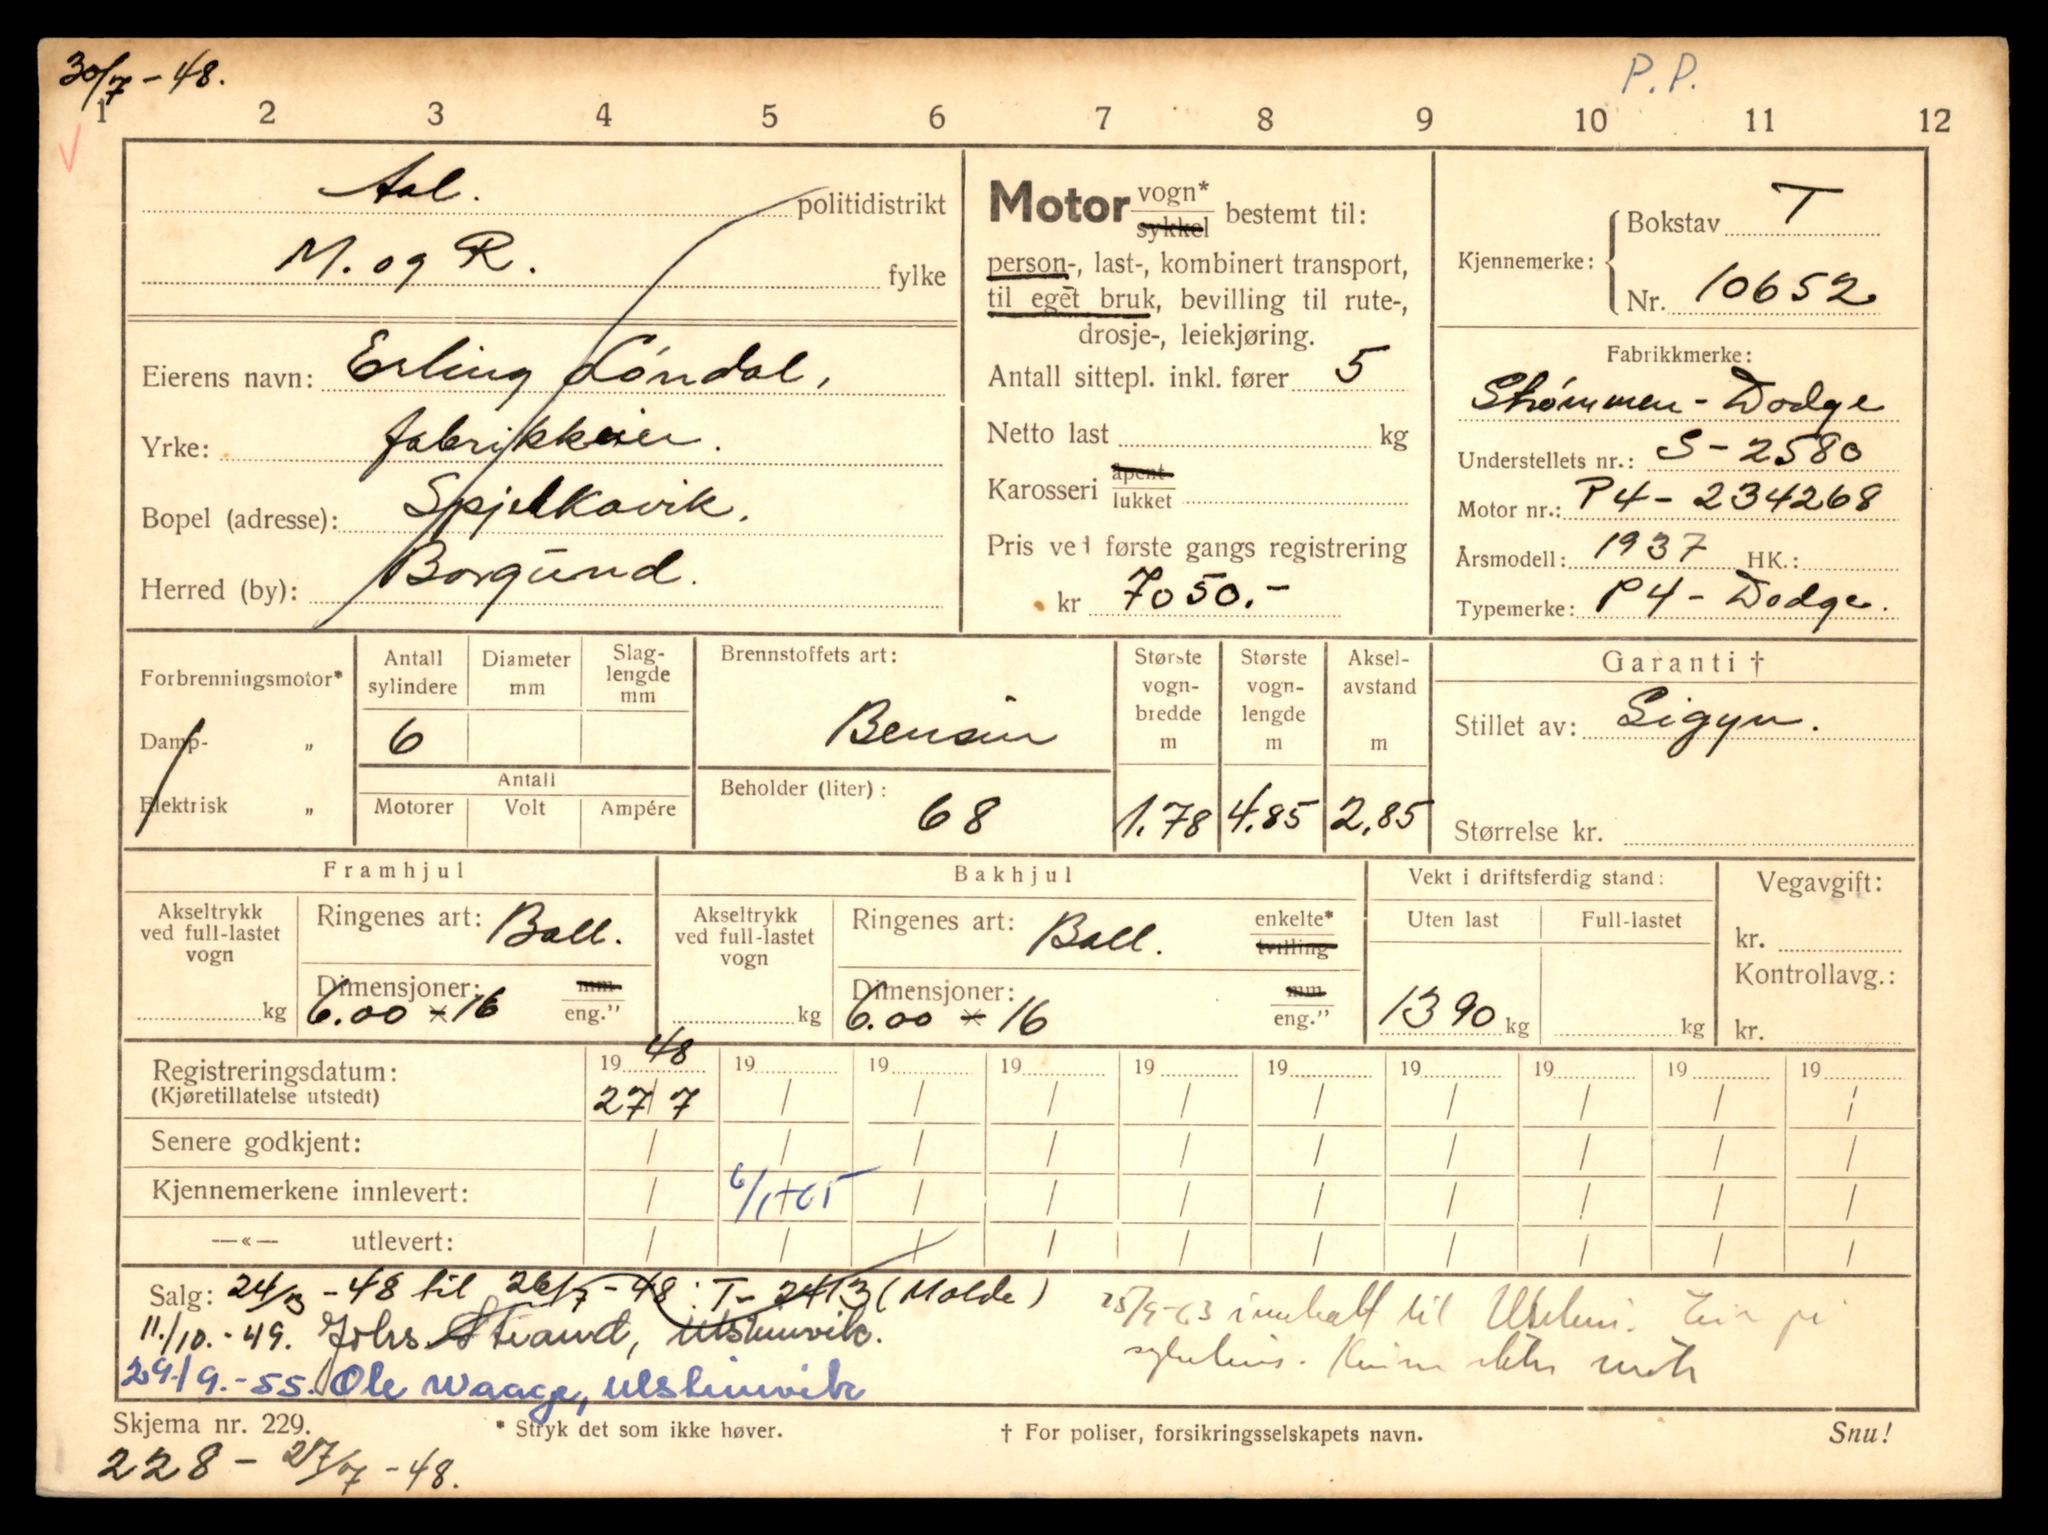 30/7 - 48.
P.P.
1 2 3 4 5 6 7 8 9 10 11 12
Aal. politidistrikt
M. og R. fylke
Eierens navn: Erling Løndal,
Yrke: fabrikkeier.
Bopel (adresse): Spjelkavik,
Herred (by): Borgund.
Motor vogn* sykkel bestemt til:
person-, last-, kombinert transport,
til eget bruk, bevilling til rute-,
drosje-, leiekjøring.
Antall sittepl. inkl. fører 5
Netto last kg
Karosseri åpent lukket
Pris ved første gangs registrering
kr 7050.-
Kjennemerke: Bokstav T
Nr. 10652
Fabrikkmerke:
Strømmen - Dodge
Understellets nr.: S - 2580
Motor nr.: P4 - 234268
Årsmodell: 1937 HK.:
Typemerke: P4 - Dodge.
Forbrenningsmotor*
Damp- „
Elektrisk „
Antall sylindere 6
Diameter mm
Slaglengde mm
Antall
Motorer Volt Ampére
Brennstoffets art:
Bensin
Beholder (liter):
68
Største vognbredde m 1.78
Største vognlengde m 4.85
Akselavstand m 2.85
Garanti †
Stillet av: Sigyn.
Størrelse kr.
Framhjul
Akseltrykk ved full-lastet vogn kg
Ringenes art: Ball.
Dimensjoner: 6.00 x 16 mm eng."
Bakhjul
Akseltrykk ved full-lastet vogn kg
Ringenes art: Ball. enkelte* tvilling
Dimensjoner: 6.00 x 16 mm eng."
Vekt i driftsferdig stand:
Uten last Full-lastet
1390 kg kg
Vegavgift:
kr.
Kontrollavg.:
kr.
Registreringsdatum: 19 48 19 19 19 19 19 19 19 19 19
(Kjøretillatelse utstedt) 27/7
Senere godkjent:
Kjennemerkene innlevert: 6/1-65
—«— utlevert:
Salg: 24/3 - 48 til 26/7 - 48: T- 2413 (Molde)
11./10. - 49. Johs Strand, Ulsteinvik.
29/9. - 55. Ole Waage, Ulsteinvik
25/9-63 til
Skjema nr. 229. * Stryk det som ikke høver. † For poliser, forsikringsselskapets navn. Snu!
228 - 27/7 - 48.